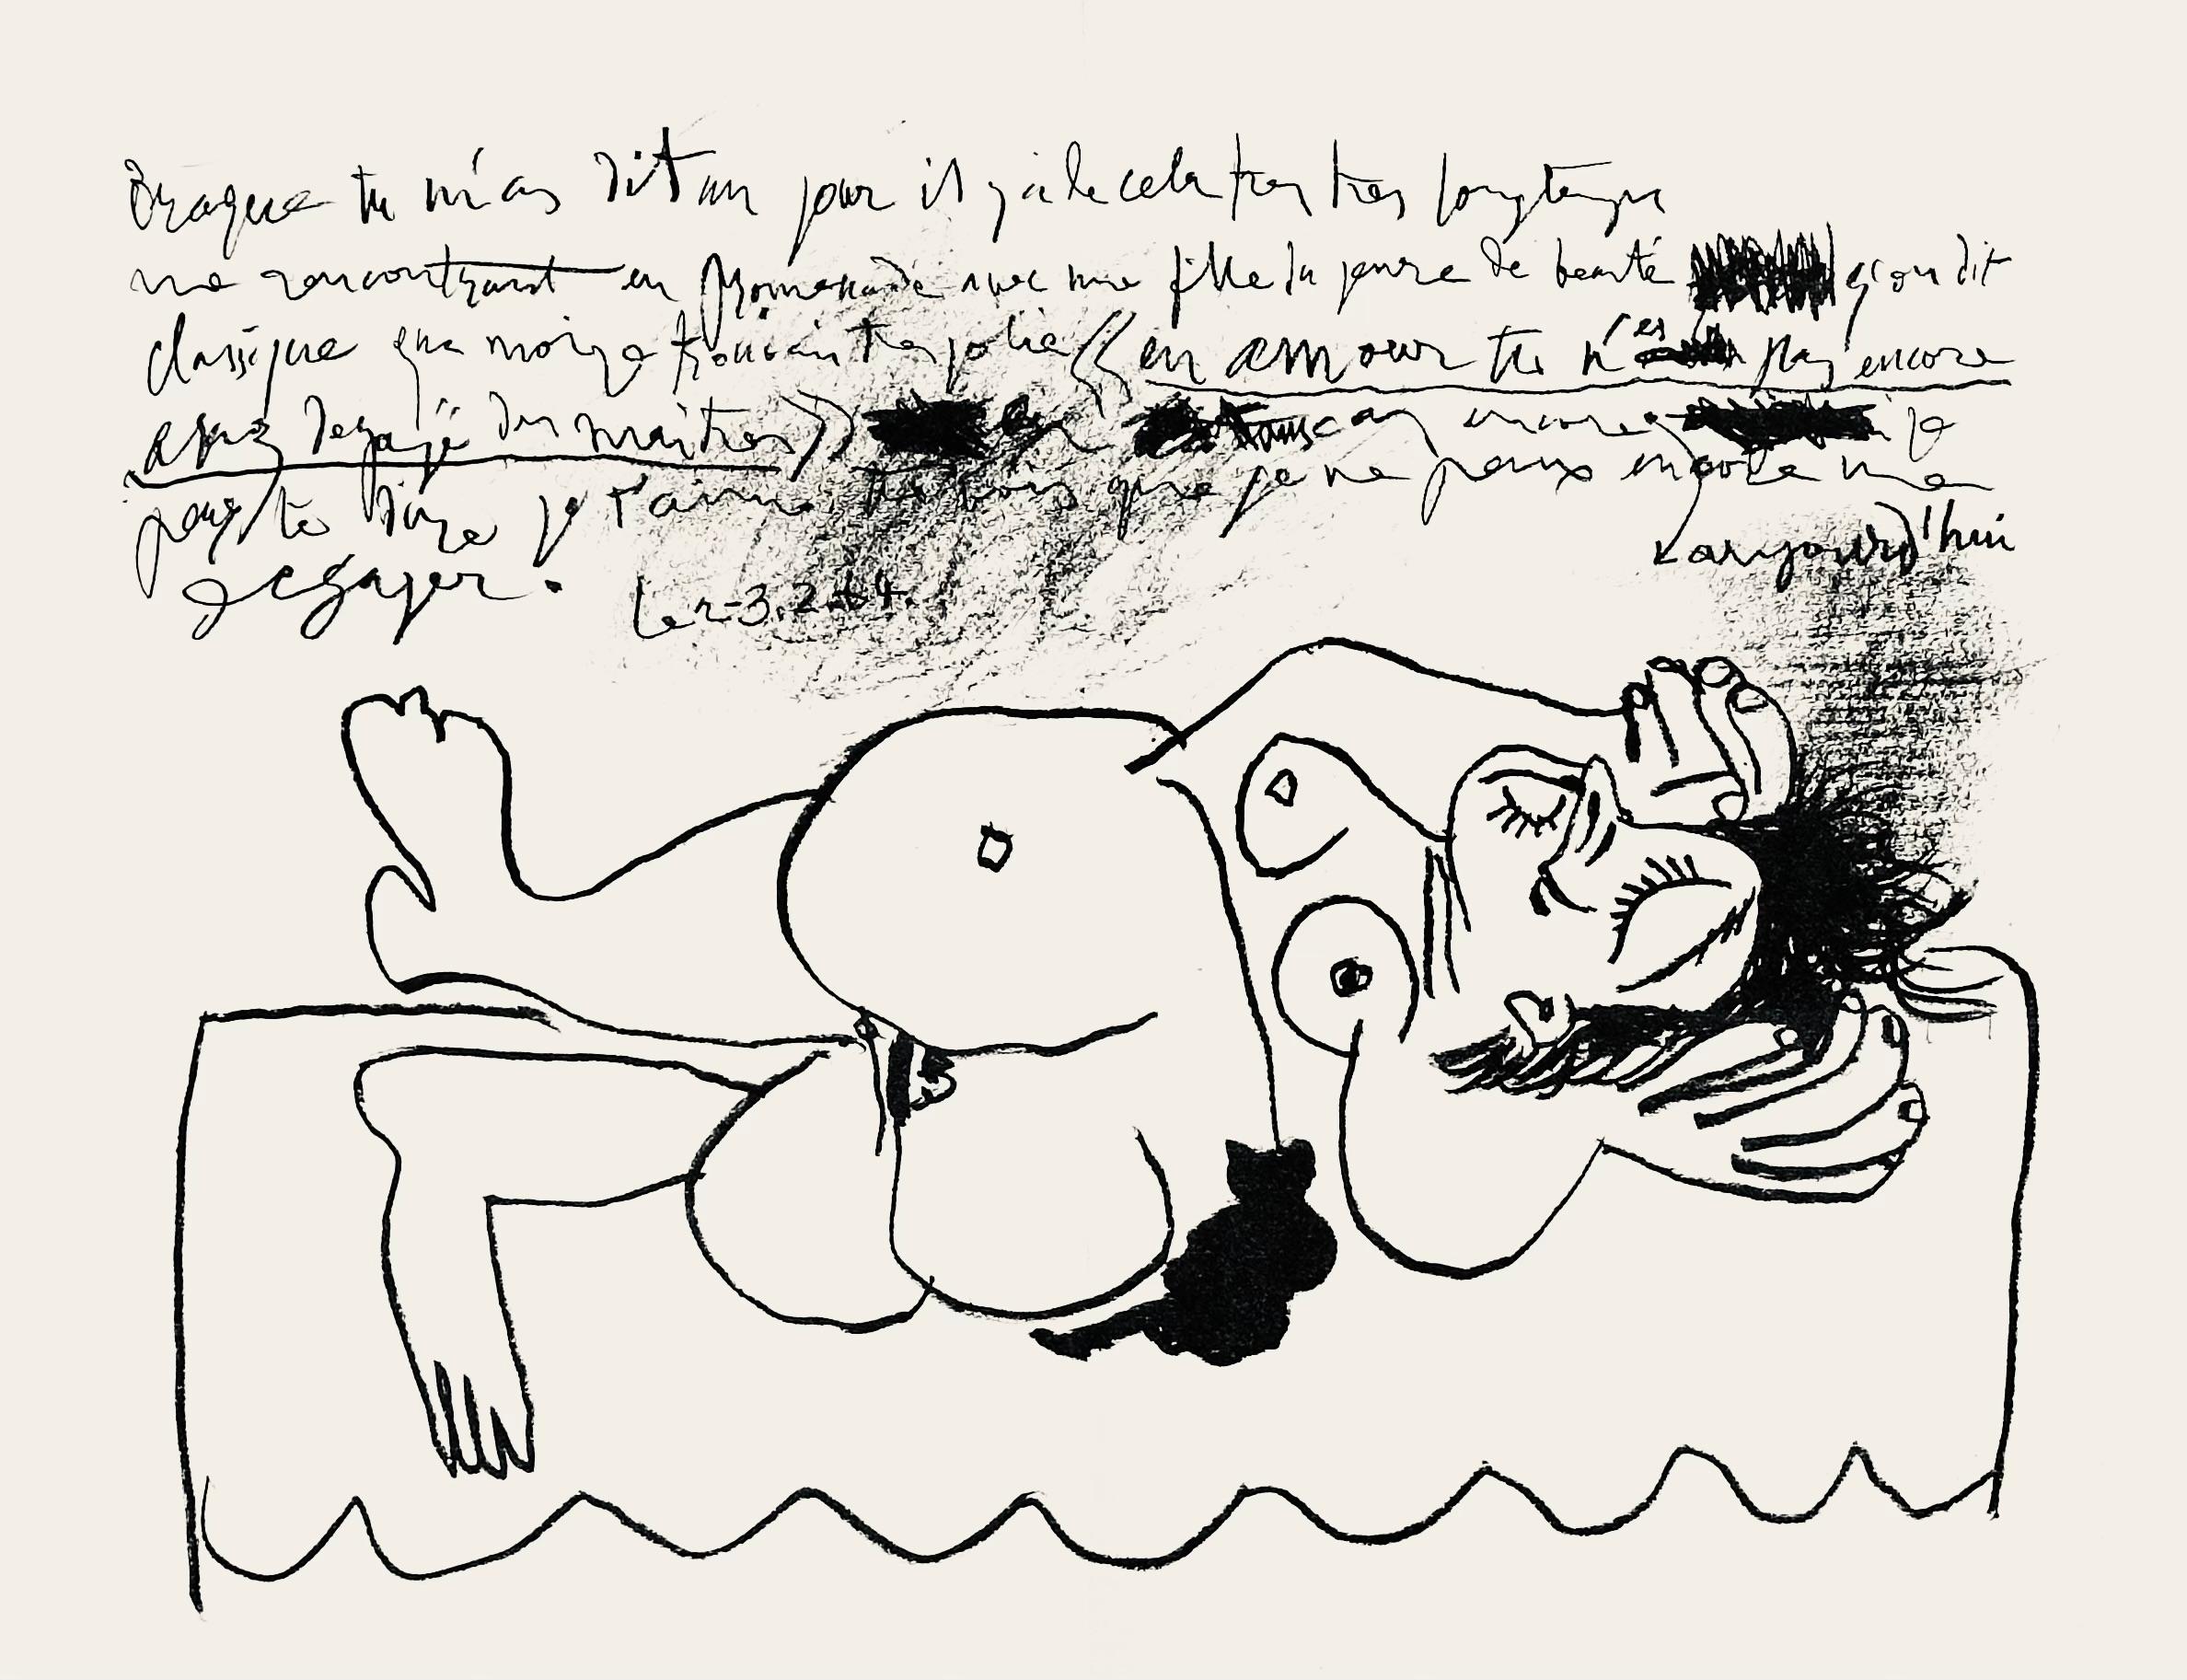 Braque tu m'as dit un jour il y a de cela tres tres longtemps
me rencontrant en promenade avec une fille du genre de beauté qu'on dit
classique que moi je trouvais tres jolie «en amour tu n'es pas encore
assez degagé des maitres» en cas encore je
peux te dire je t'aime tu vois que je ne peux encore me
aujourd'hui
degager.
Le 2-3.2.64.